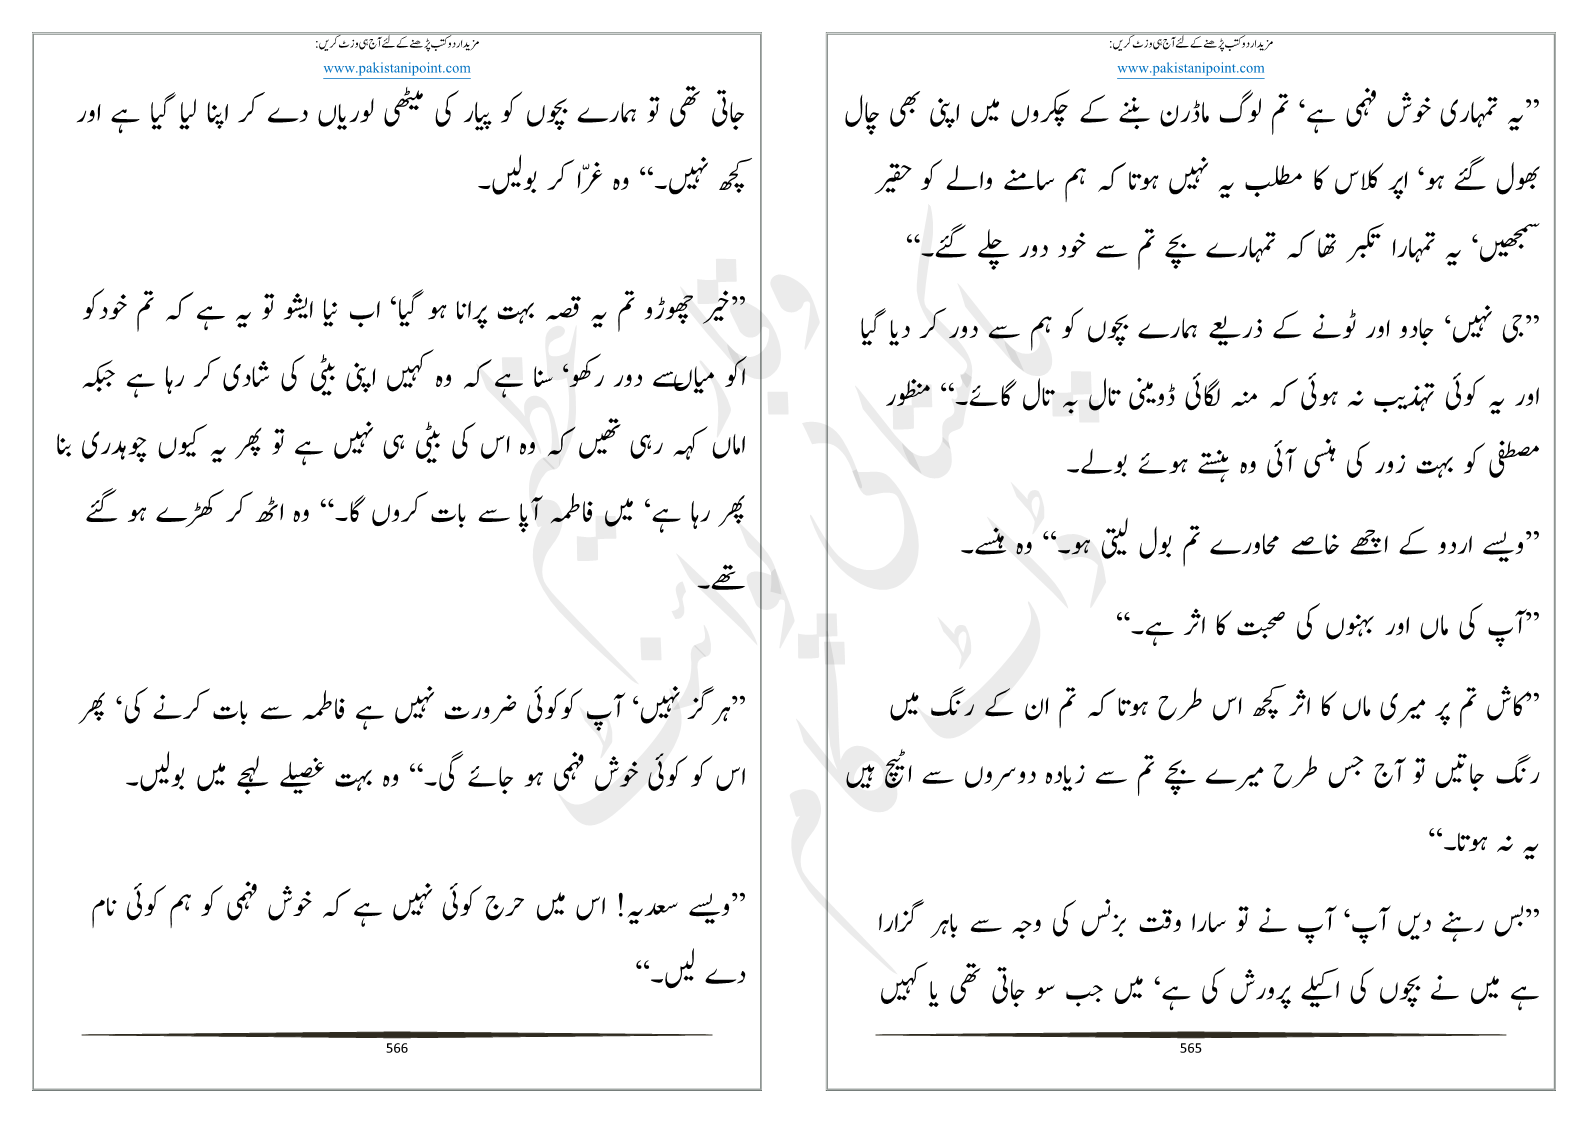 مزید اردو کتب پڑھنے کے لئے آج ہی وزٹ کریں:
www.pakistanipoint.com
”یہ تمہاری خوش فہمی ہے‘ تم لوگ ماڈرن بننے کے چکروں میں اپنی بھی چال
بھول گئے ہو‘ اپر کلاس کا مطلب یہ نہیں ہوتا کہ ہم سامنے والے کو حقیر
سمجھیں‘ یہ تمہارا تکبر تھا کہ تمہارے بچے تم سے خود دور چلے گئے۔“
”جی نہیں‘ جادو اور ٹونے کے ذریعے ہمارے بچوں کو ہم سے دور کر دیا گیا
اور یہ کوئی تہذیب نہ ہوئی کہ منہ لگائی ڈومینی تال بہ تال گائے۔“ منظور
مصطفی کو بہت زور کی ہنسی آئی وہ ہنستے ہوئے بولے۔
”ویسے اردو کے اچھے خاصے محاورے تم بول لیتی ہو۔“ وہ ہنسے۔
”آپ کی ماں اور بہنوں کی صحبت کا اثر ہے۔“
”کاش تم پر میری ماں کا اثر کچھ اس طرح ہوتا کہ تم ان کے رنگ میں
رنگ جاتیں تو آج جس طرح میرے بچے تم سے زیادہ دوسروں سے اٹیچ ہیں
یہ نہ ہوتا۔“
”بس رہنے دیں آپ‘ آپ نے تو سارا وقت بزنس کی وجہ سے باہر گزارا
ہے میں نے بچوں کی اکیلے پرورش کی ہے‘ میں جب سو جاتی تھی یا کہیں
565
مزید اردو کتب پڑھنے کے لئے آج ہی وزٹ کریں:
www.pakistanipoint.com
جاتی تھی تو ہمارے بچوں کو پیار کی میٹھی لوریاں دے کر اپنا لیا گیا ہے اور
کچھ نہیں۔“ وہ غرّا کر بولیں۔
”خیر چھوڑو تم یہ قصہ بہت پرانا ہو گیا‘ اب نیا ایشو تو یہ ہے کہ تم خودکو
اکو میاں سے دور رکھو‘ سنا ہے کہ وہ کہیں اپنی بیٹی کی شادی کر رہا ہے جبکہ
اماں کہہ رہی تھیں کہ وہ اس کی بیٹی ہی نہیں ہے تو پھر یہ کیوں چوہدری بنا
پھر رہا ہے‘ میں فاطمہ آپا سے بات کروں گا۔“ وہ اٹھ کر کھڑے ہو گئے
تھے۔
”ہر گز نہیں‘ آپ کوکوئی ضرورت نہیں ہے فاطمہ سے بات کرنے کی‘ پھر
اس کو کوئی خوش فہمی ہو جائے گی۔“ وہ بہت غصیلے لہجے میں بولیں۔
”ویسے سعدیہ! اس میں حرج کوئی نہیں ہے کہ خوش فہمی کو ہم کوئی نام
دے لیں۔“
566
وقار عظیم
پاکستانی پوائنٹ
ڈاٹ کام